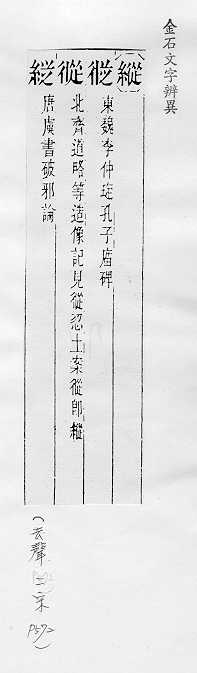 金石文字辨異
縱
従 東魏李仲琁孔子廟碑
從 北齊道略等造像記見從忍土案從即縱
緃 唐虞書破邪論
(去聲 二宋 P572)